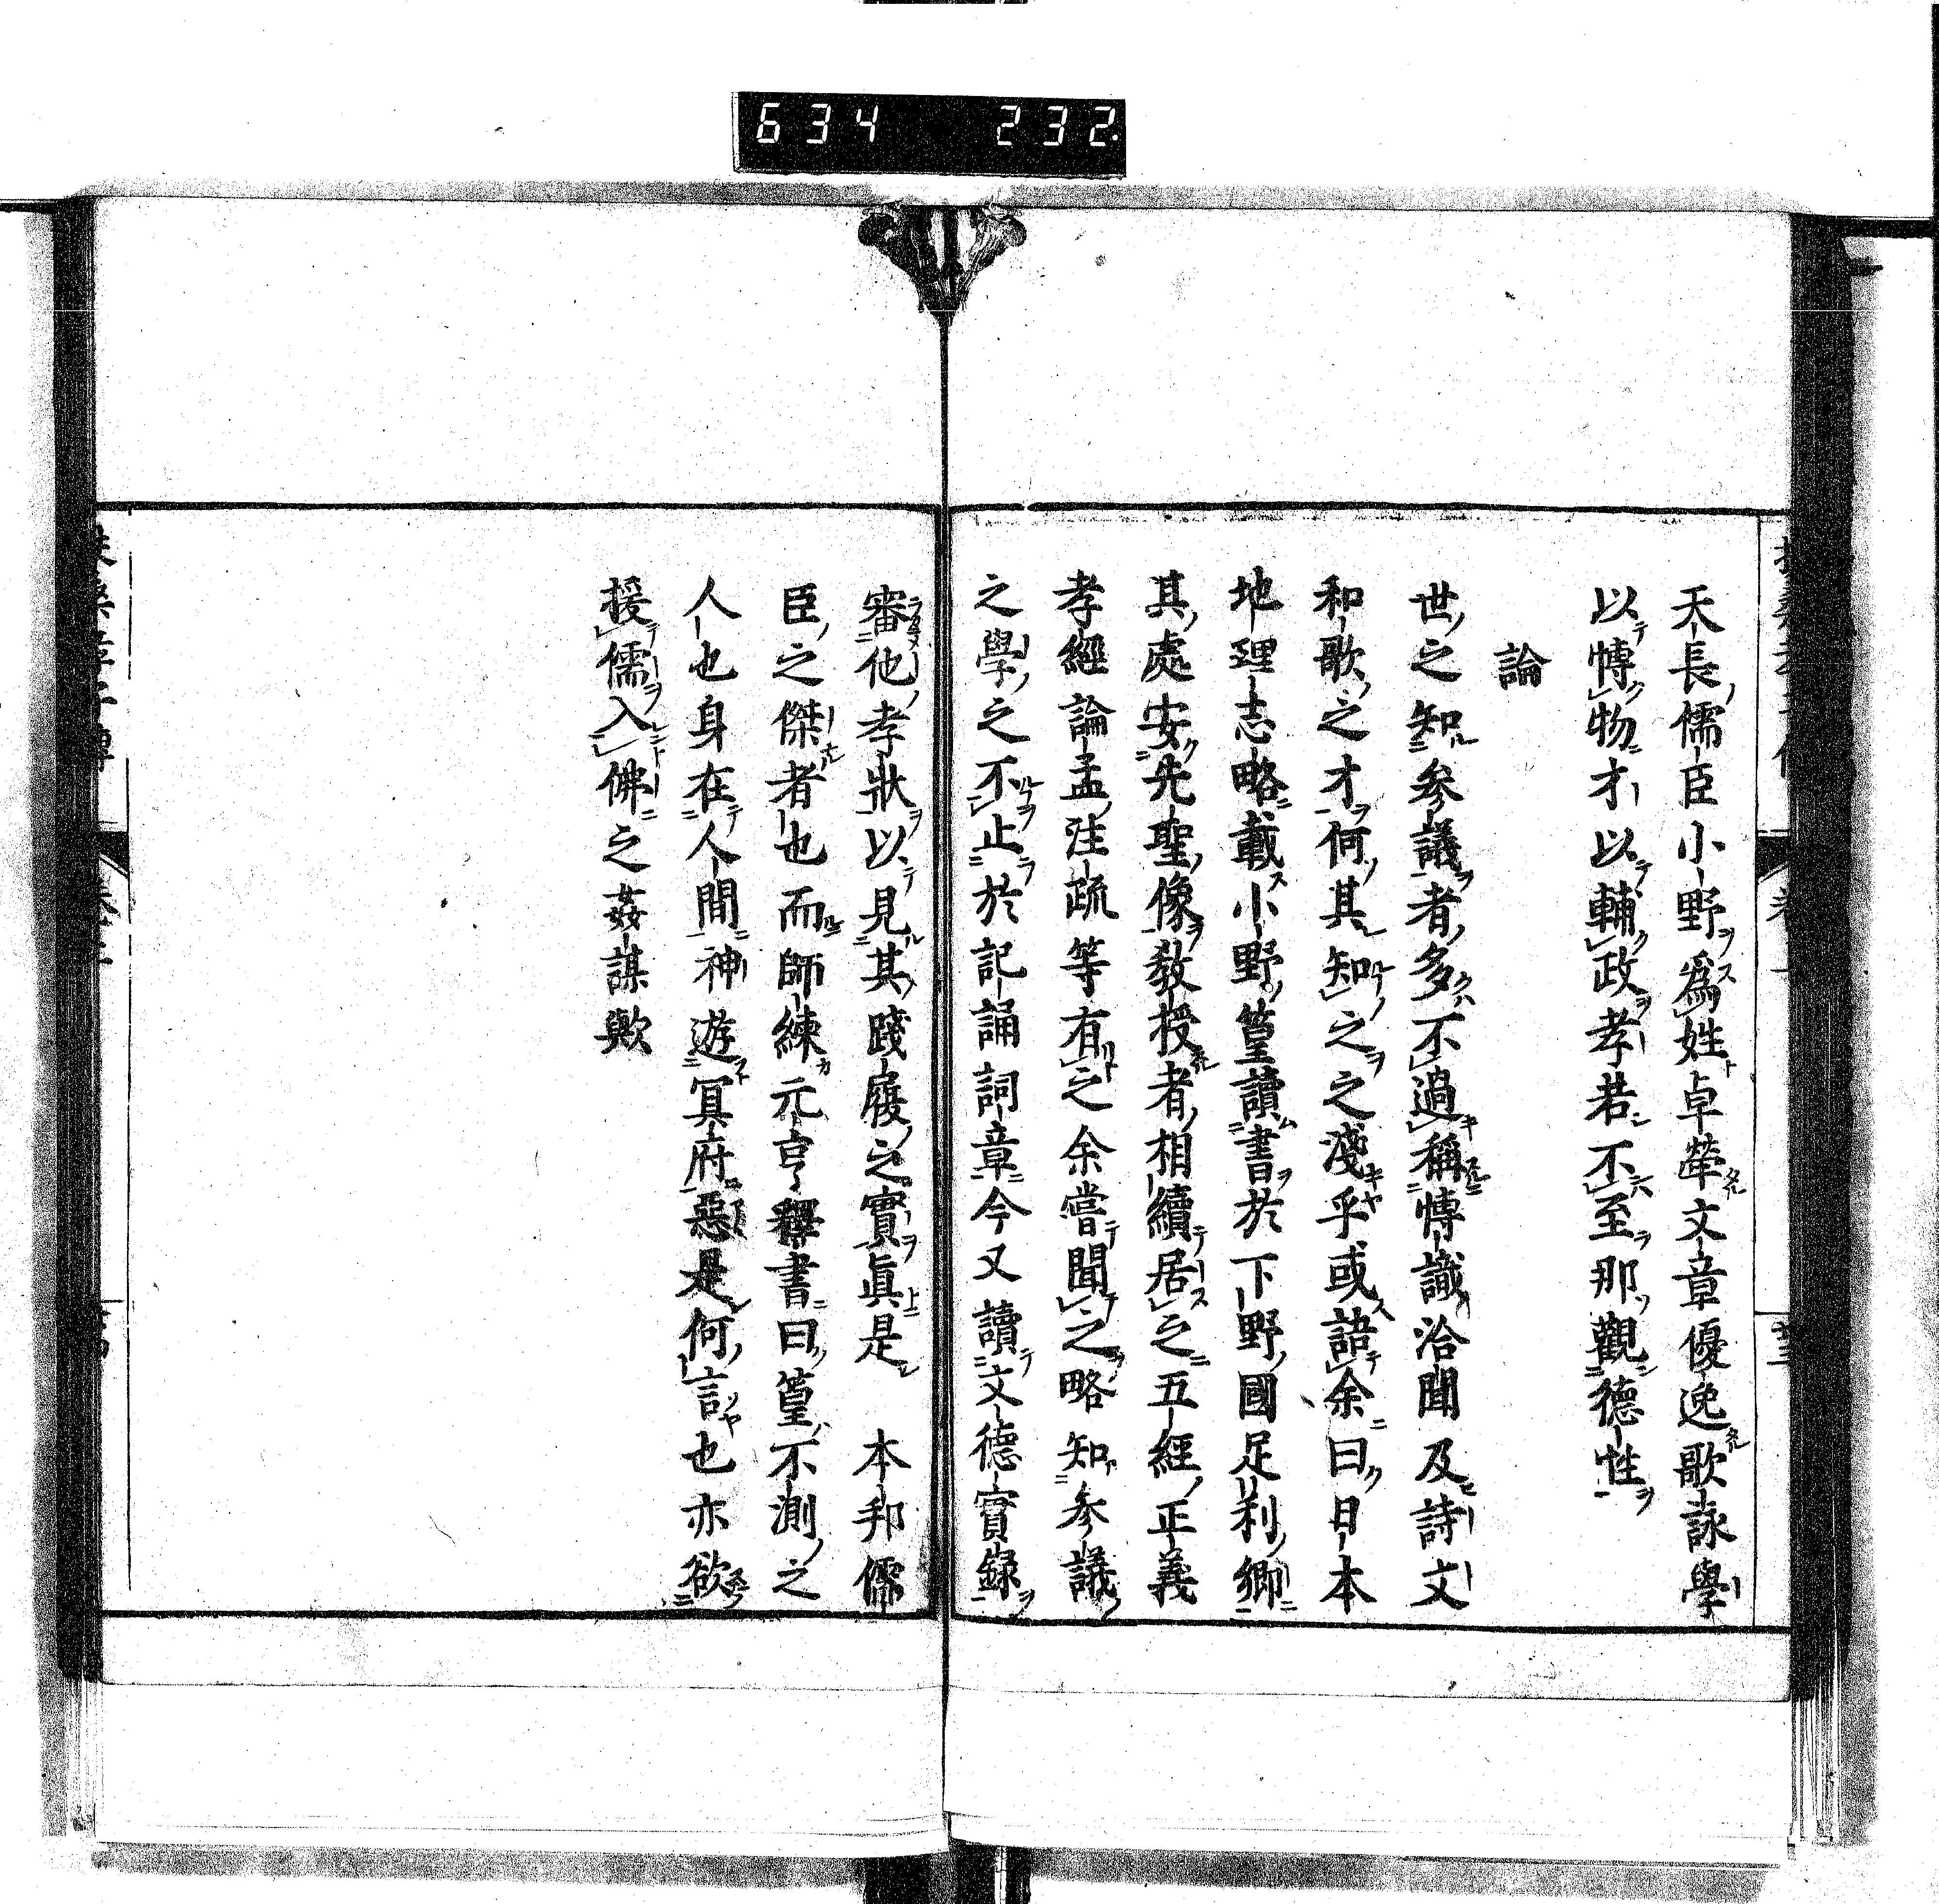 634 232
天長儒臣小野爲姓卓犖文章優逸歌詠學
以博物才以輔政孝若不至那觀德性
論
世之知參議者多不過稱博識洽聞及詩文
和歌之才何其知之之淺乎或語余曰日本
地理志略載小野篁讀書於下野國足利鄉
其處安先聖像教授者相續居之五經正義
孝經論孟注疏等有之余嘗聞之略知參議
之學之不止於記誦詞章今又讀文德實録
審他孝狀以見其踐履之實眞是 本邦儒
臣之傑者也而師練元亨釋書曰篁不測之
人也身在人間神遊冥府惡是何言也亦欲
援儒入佛之姦謀歟